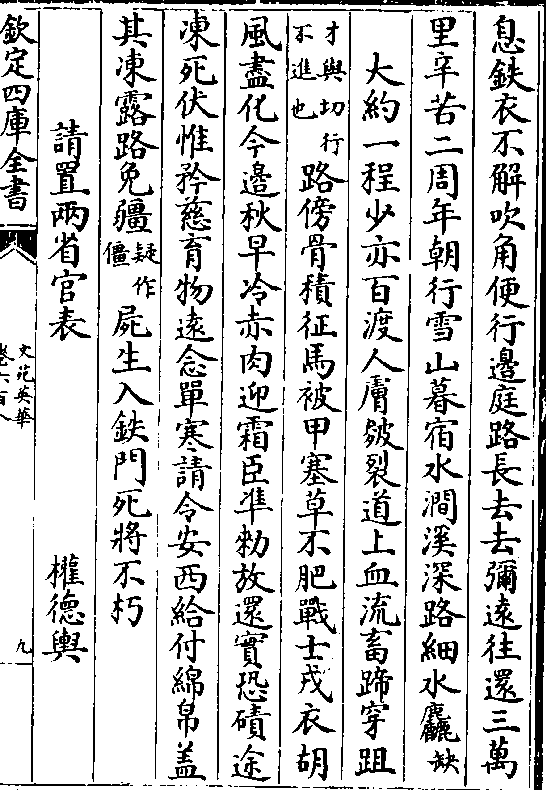 息鉄衣不解吹角便行邉庭路長去去彌遠往還三萬
里辛苦二周年朝行雪山暮宿水澗溪深路細水麤缺
大約一程少亦百渡人膚皴裂道上血流畜蹄穿跙
才與切行不進也路傍骨積征馬被甲塞草不肥戰士戍衣胡
風盡化今邉秋早冷赤肉迎霜臣準勑放還實恐磧途
凍死伏惟矜慈育物遠念單寒請令安西給付綿帛盖
其凍露路免疆疑作僵屍生入鉄門死將不朽
請置兩省官表 權德輿
欽定四庫全書
文苑英華
卷六百八
九